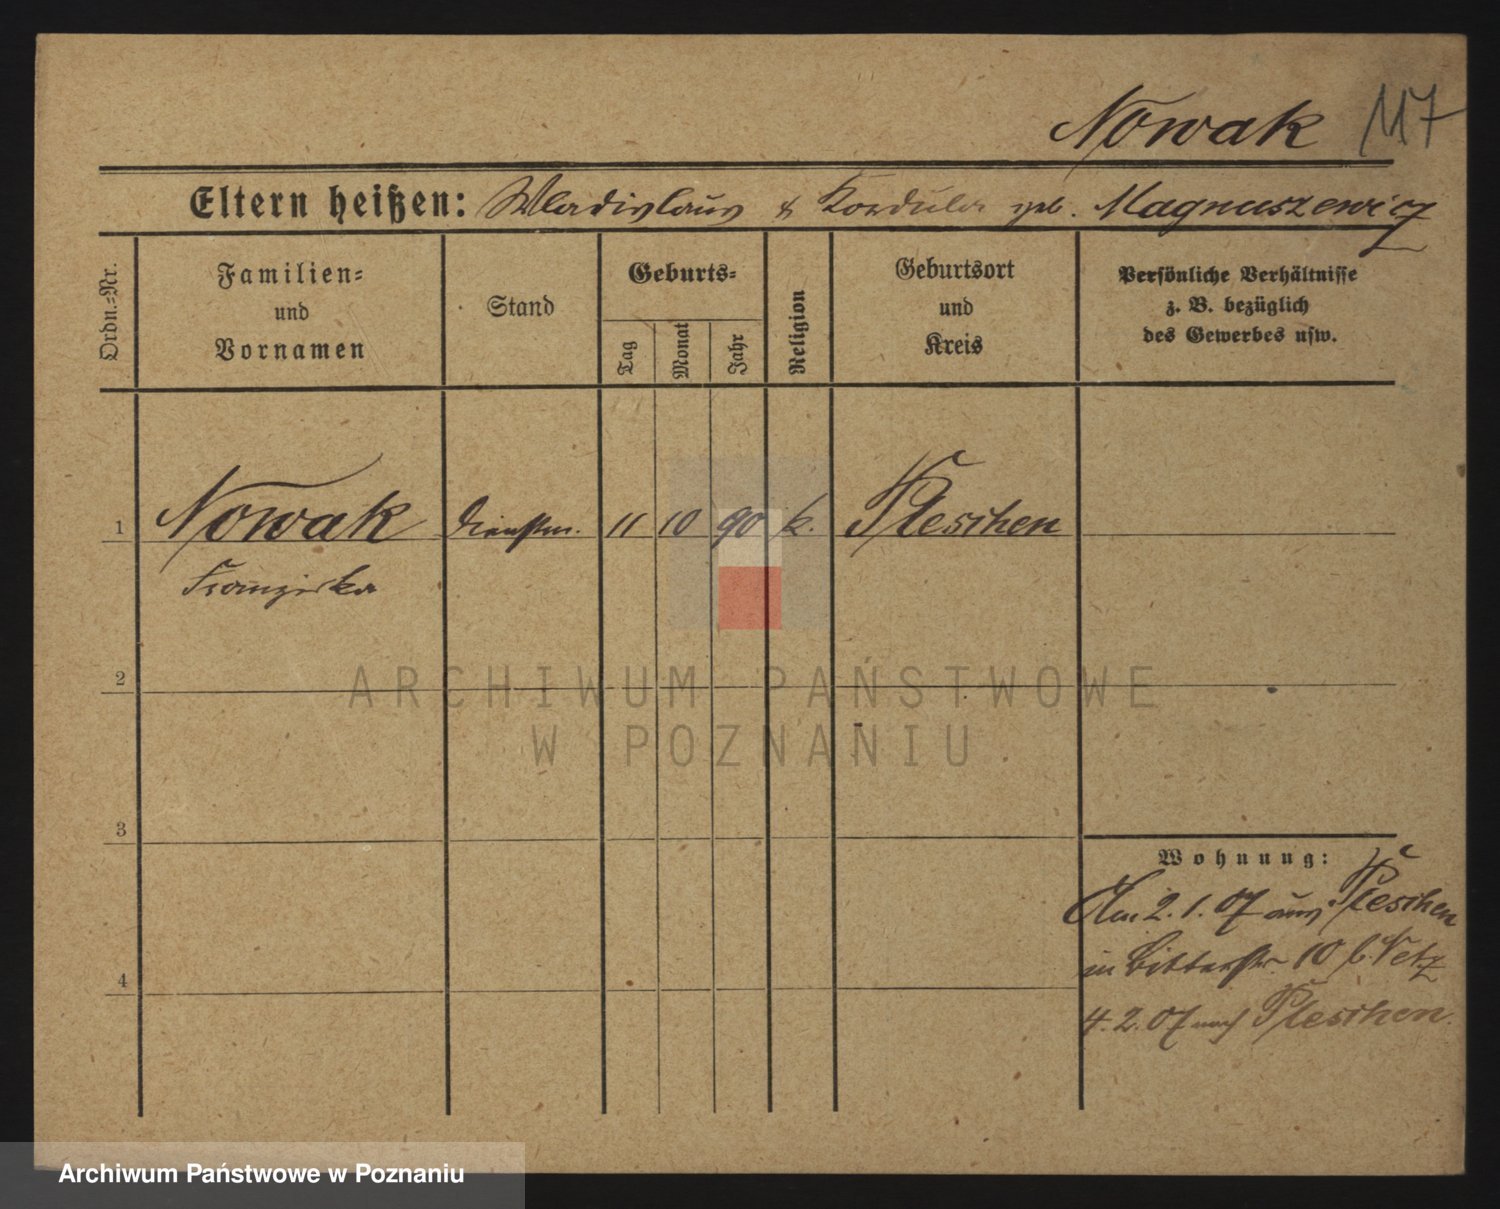 Nowak 117
Eltern heißen: Wladislaus & Kordula geb. Magnuszewicz
Ordn.=Nr.
Familien=
und
Vornamen
Stand
Geburts=
Tag
Monat
Jahr
Religion
Geburtsort
und
Kreis
Persönliche Verhältnisse
z. B. bezüglich
des Gewerbes usw.
1 Nowak Dienstm. 11 10 90 k. Pleschen
Franziska
2
ARCHIWUM PAŃSTWOWE
W POZNANIU
3
Wohnung:
Am 2. 1. 07 aus Pleschen
in Bitterstr. 10 b. Netz
4
4. 2. 07 nach Pleschen.
Archiwum Państwowe w Poznaniu